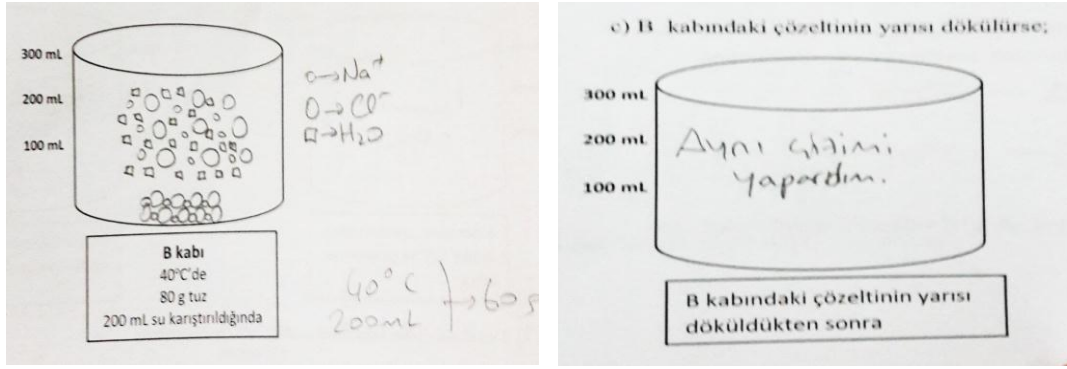 300 mL
200 mL
100 mL
o→Na⁺
O→Cl⁻
□→H₂O
B kabı
40°C'de
80 g tuz
200 mL su karıştırıldığında
40°C
200mL
→60g
c) B kabındaki çözeltinin yarısı dökülürse;
300 mL
200 mL
100 mL
Aynı çizimi
yapardım.
B kabındaki çözeltinin yarısı
döküldükten sonra